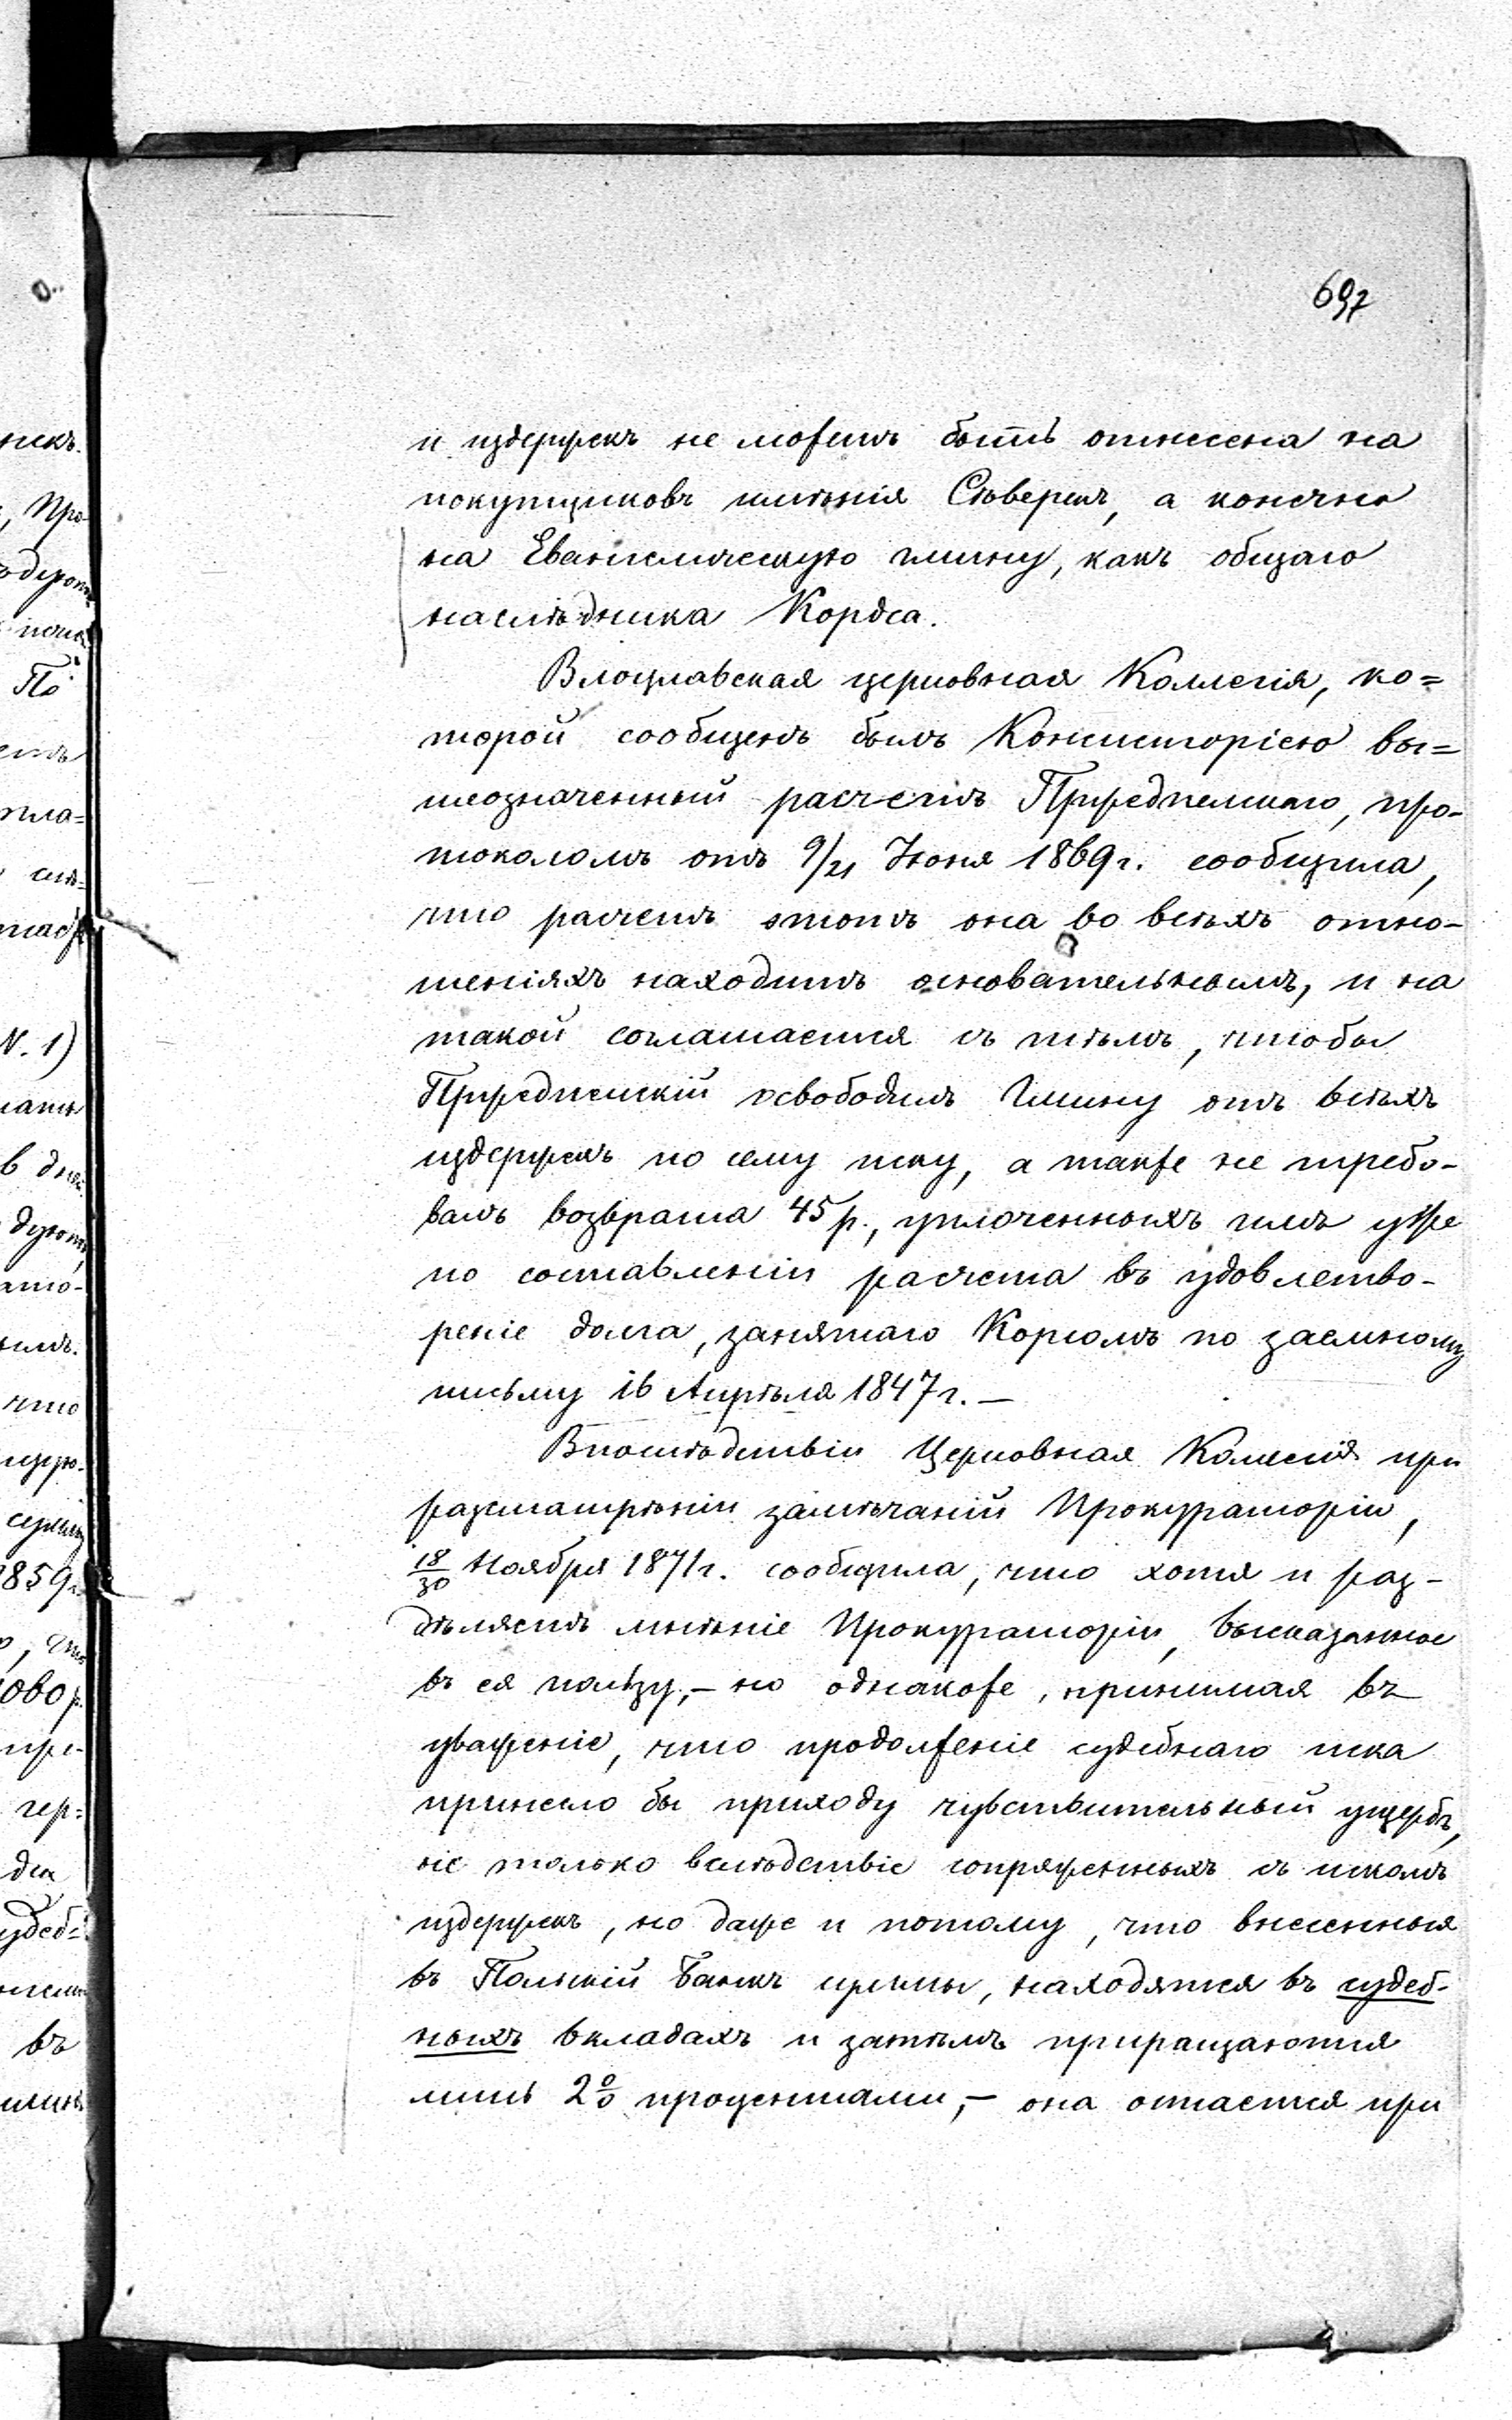 697
и издержекъ не можетъ быть отнесена на
покупщиковъ имѣнія Сѣверскъ, а конечно
на Евангелическую гмину, какъ общаго
наслѣдника Кордса.
Влоцлавская церковная Коллегія, ко=
торой сообщенъ былъ Консисторіею вы=
шеозначенный расчетъ Пржедпелскаго, про-
токоломъ отъ 9/21 Іюня 1869 г. сообщила,
что расчетъ этотъ она во всѣхъ отно-
шеніяхъ находитъ основательнымъ, и на
такой соглашается съ тѣмъ, чтобы
Пржедпелскій освободилъ Гмину отъ всѣхъ
издержекъ по сему иску, а также не требо-
валъ возврата 45 р., уплоченныхъ имъ уже
по составленіи расчета въ удовлетво-
реніе долга, занятаго Корсомъ по заемному
письму 16 Апрѣля 1847 г. —
Впослѣдствіи Церковная Колегія при
разсматрѣніи замѣчаній Прокураторіи,
18/30 Ноября 1871 г. сообщила, что хотя и раз-
дѣляетъ мнѣніе Прокураторіи, высказанное
въ ея пользу, — но однакоже, принимая въ
уваженіе, что продолженіе судебнаго иска
принесло бы приходу чувствительный ущербъ,
не только вслѣдствіе сопряженныхъ съ искомъ
издержекъ, но даже и потому, что внесенныя
въ Польскій Банкъ суммы, находятся въ судеб-
ныхъ вкладахъ и затѣмъ приращаются
лишь 2% процентами, — она остается при